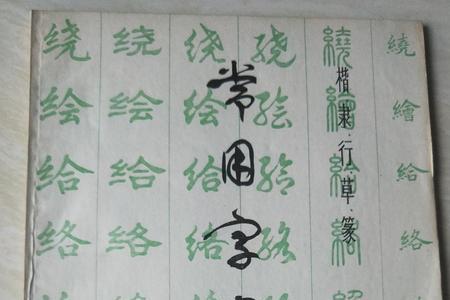 常用字
楷·隶·行·草·篆
绕 绕 绕 绕 繞 繞
绘 绘 绘 绘 繪 繪
给 给 给 给 給 給
络 络 络 络 絡 絡